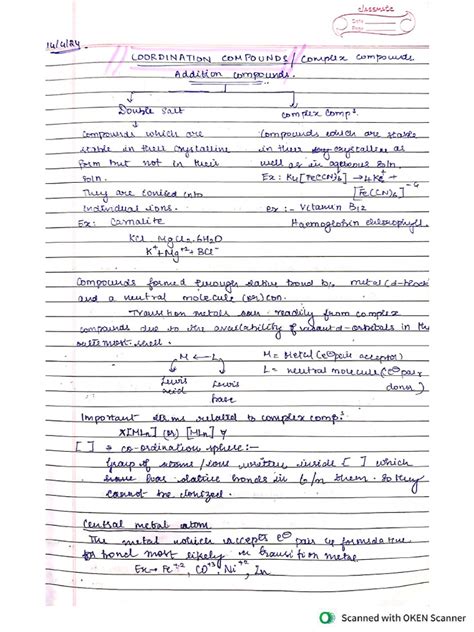 classmate
Date
Page
14/4/24
COORDINATION COMPOUNDS / Complex compounds
Addition compounds.
Double salt
complex comp^s.
compounds which are
stable in their crystalline
form but not in their
soln.
They are
into
individual ions.
Ex: Carnalite
KCl MgCl2.6H2O
K+ + Mg+2 + 3Cl-
Compounds which are stable
in their crystalline as
well as in aqueous soln.
Ex: K4[Fe(CN)6] → 4K+ +
[Fe(CN)6]-4
ex :- Vitamin B12
Haemoglobin chlorophyll.
Compounds formed through dative bond b/w metal (d-block)
and a neutral molecule (or) ion.
Transition metals readily form complex
compounds due to the availability of vacant d-orbitals in the
outermost shell.
M ← L
Lewis
acid
Lewis
base
M = Metal (e⊖ pair acceptor)
L = neutral molecule (e⊖ pair
donor)
Important terms related to complex comp^s.
X[MLn] (or) [MLn]Y
[ ] ⇒ co-ordination sphere :-
Group of atoms / ions written inside [ ] which
have dative bonds in b/n them. So they
cannot be ionized.
Central metal atom
The metal which accepts e⊖ pair
for bond most likely transition metal
Ex → Fe+2, CO+3, Ni+2, Zn
Scanned with OKEN Scanner